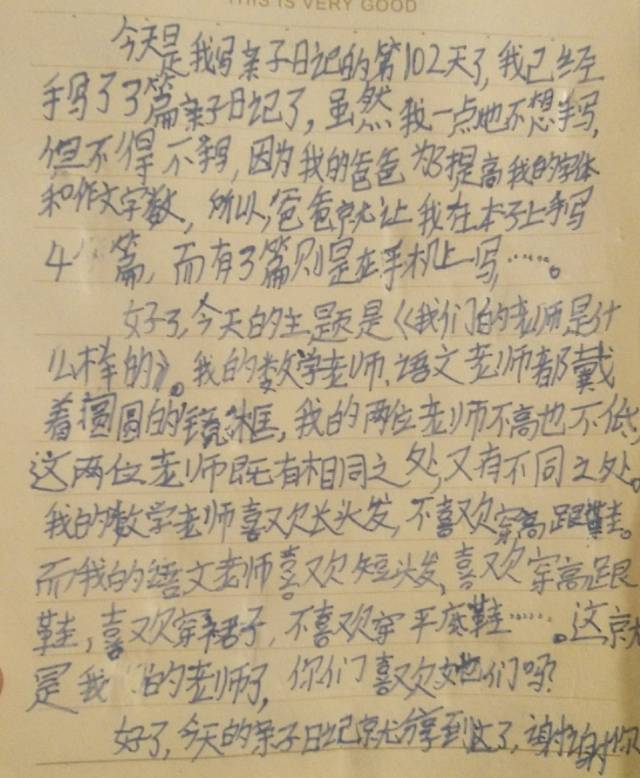 THIS IS VERY GOOD
今天是我写亲子日记的第102天了,我已经
手写了3篇亲子日记了,虽然我一点也不想手写,
但不得不写,因为我的爸爸为了提高我的字体
和作文字数,所以,爸爸就让我在本子上手写
4篇,而有3篇则是在手机上写……。
好了,今天的主题是《我们的老师是什
么样的》。我的数学老师、语文老师都戴
着圆圆的镜框,我的两位老师不高也不低,
这两位老师既有相同之处,又有不同之处。
我的数学老师喜欢长头发,不喜欢穿高跟鞋。
而我的语文老师喜欢短头发,喜欢穿高跟
鞋,喜欢穿裙子,不喜欢穿平底鞋……。这就
是我的老师了,你们喜欢她们吗?
好了,今天的亲子日记就分享到这了,谢谢你